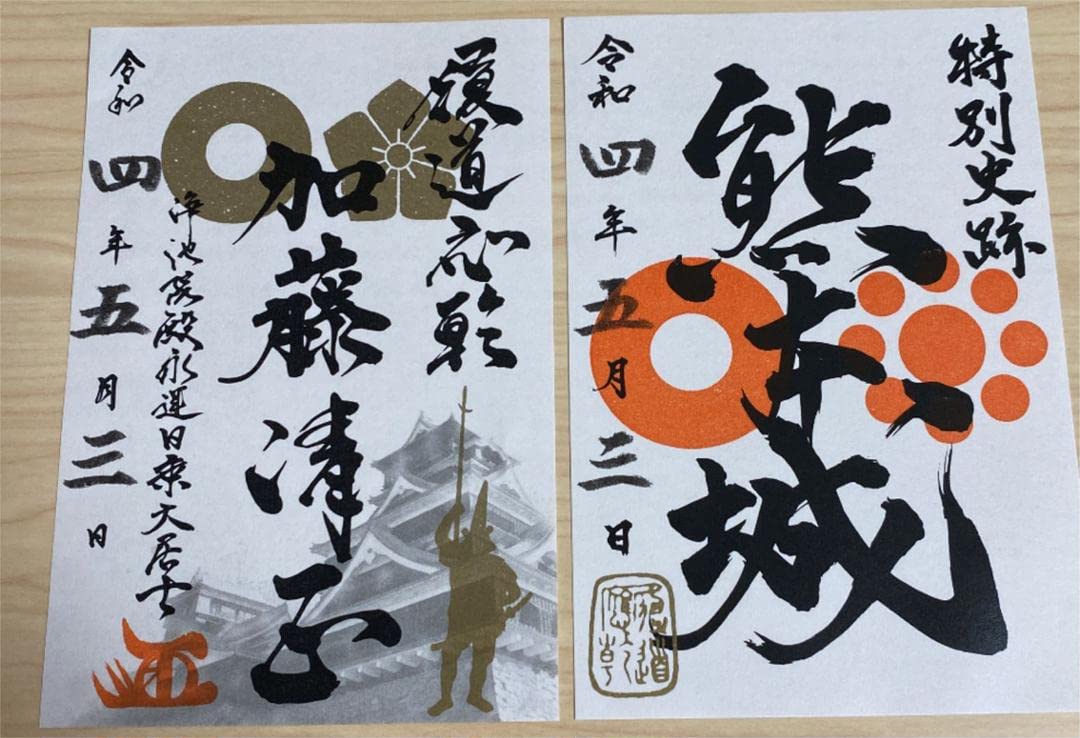 特別史跡
熊本城
令和四年五月三日
履道応乾
加藤清正
浄池院殿永運日乗大居士
令和四年五月三日